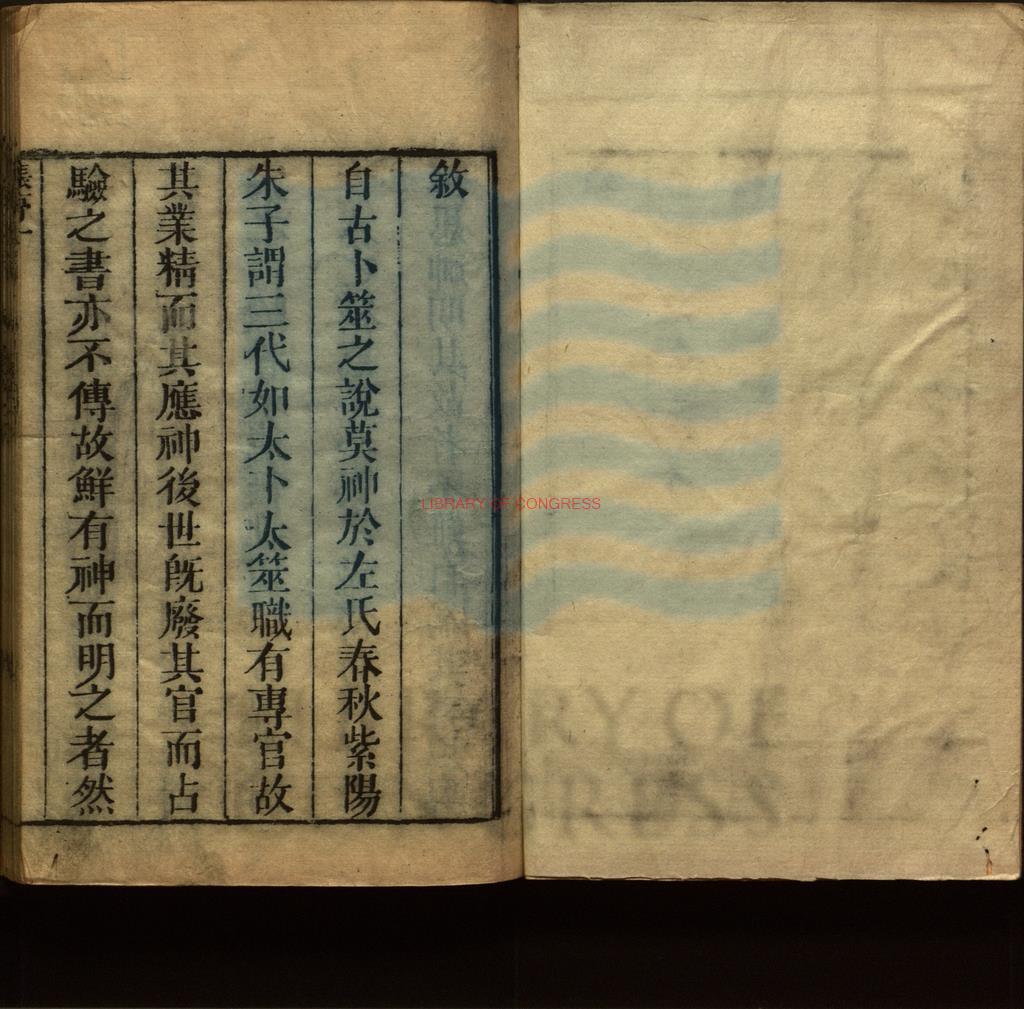 敘
自古卜筮之說莫神於左氏春秋紫陽
朱子謂三代如太卜太筮職有專官故
其業精而其應神後世旣廢其官而占
驗之書亦不傳故鮮有神而明之者然
LIBRARY OF CONGRESS